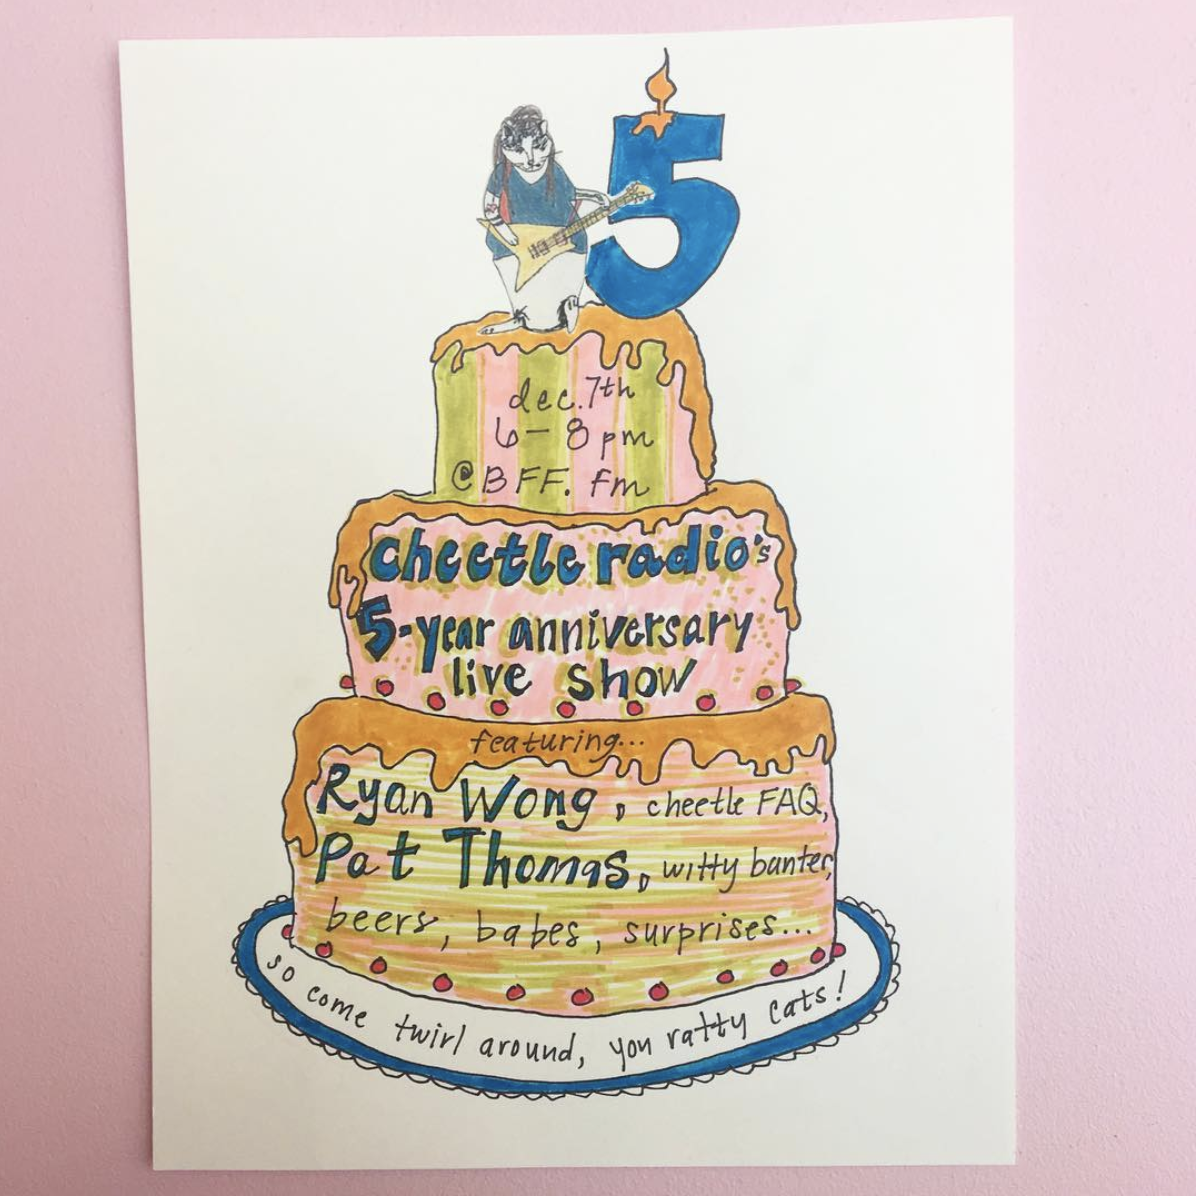 5
dec. 7th
6-8 pm
@BFF. fm
cheetle radio's
5-year anniversary
live show
featuring...
Ryan Wong, cheetle FAQ,
Pat Thomas, witty banter,
beers, babes, surprises...
so come twirl around, you ratty cats!